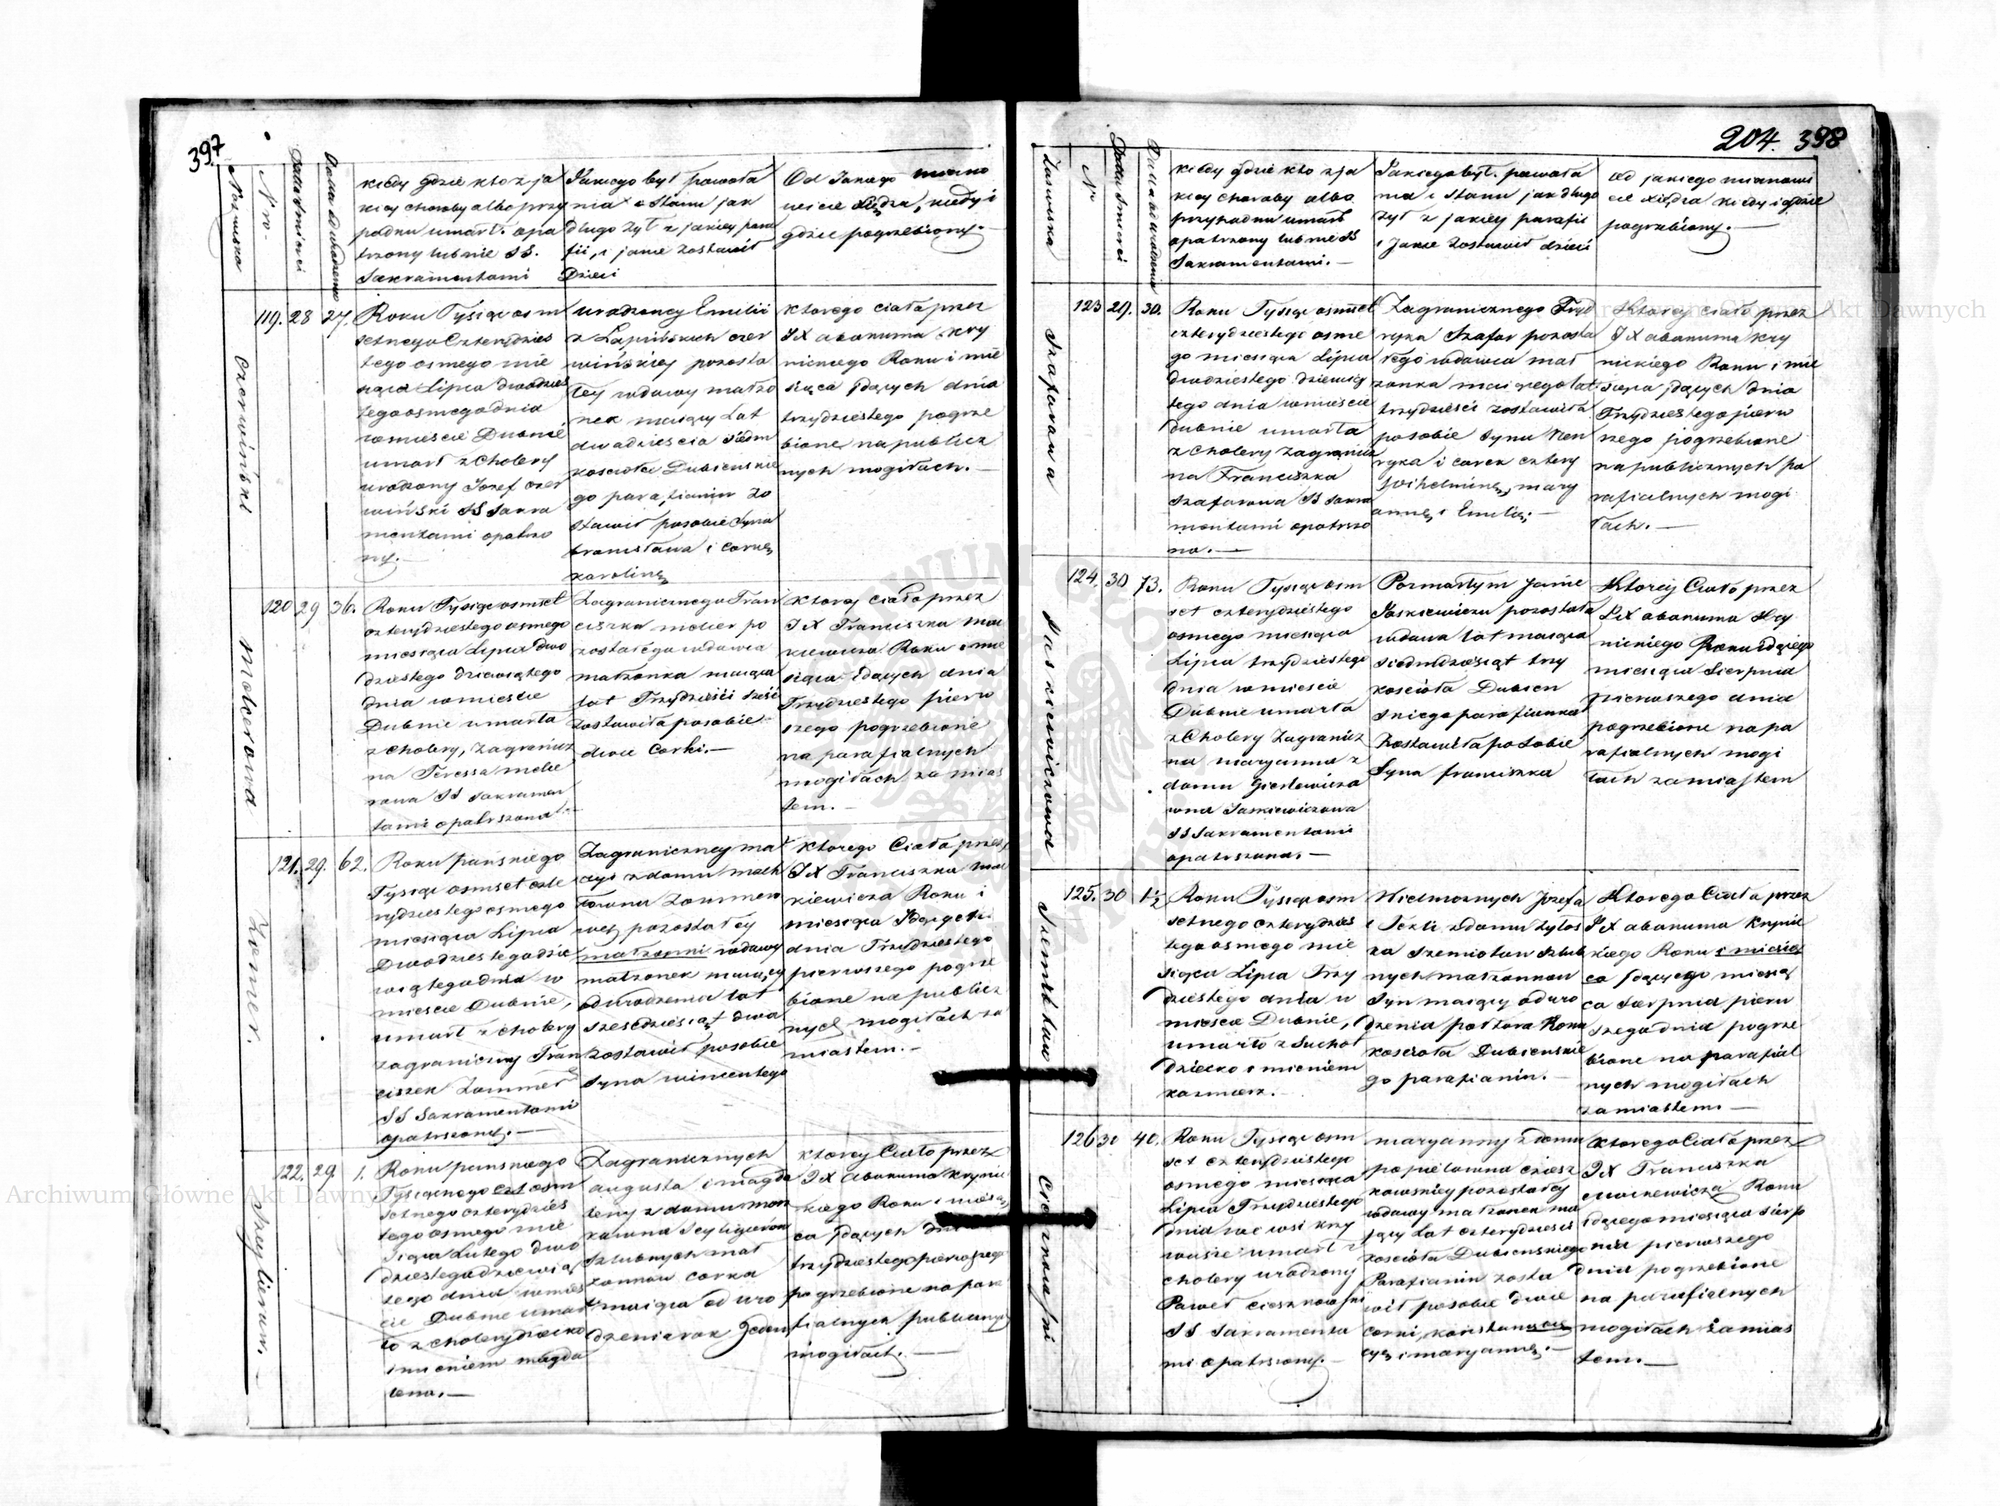 397
Nazwiska
Nro
Data Śmierci
Data od urodzenia
kiedy gdzie kto z ja
kiey choroby albo przy
padku umarł. opa
trzony lub nie SS.
Sakramentami
Jakiego był powoła
nia i Stanu jak
długo żył z jakiey para
fii, i jakie zostawił
Dzieci
Od Jakiego
Xiędza, kiedy i
gdzie pogrzebiony.
119. 28 27.
Czerwiński
Roku Tysiąc osm
setnego Czterdzies
tego osmego mie
siąca Lipca dwudzies
tego osmego dnia
w mieście Dubnie
umarł z Cholery
urodzony Jozef czer
wiński SS Sakra
mentami opatrzo
ny.
urodzoney Emilii
z Łapińskich czer
wińskiey pozosta
łey wdowy małżo
nek maiący Lat
dwadzieścia siedm
kościoła Dubieńskie
go parafianin zo
stawił posobie Syna
bronisława i corkę
karolinę
ktorego ciało przez
JX abakuma kry
nickiego Roku i mie
siąca idących dnia
trzydziestego pogrze
bione na publicz
nych mogiłach.
120 29 36.
Melcerowa
Roku Tysiąc osmset
czterydziestego osmego
miesiąca Lipca dwu
dziestego dziewiątego
dnia w mieście
Dubnie umarła
z Cholery, Zagranicz
na Teressa melce
rowa SS Sakramen
tami opatrzona
Zagranicznego Fran
ciszka melcer po
zostałego wdowca
małżonka maiąca
lat Trzydzieści sześć
zostawiła posobie
dwie Corki.
Ktorey ciało przez
JX Franciszka mac
kiewicza Roku i mie
siąca idących dnia
Trzydziestego pierw
szego pogrzebione
na parafialnych
mogiłach za mias
tem.
121. 29. 62.
Zomer.
Roku pańskiego
Tysiąc osmset czte
rydziestego osmego
miesiąca Lipca
Dwudziestego dzie
wiątego dnia w
mieście Dubnie,
umarł z cholery
zagraniczny Fran
ciszek Zommer
SS Sakramentami
opatrzony.
Zagraniczney ma
Zommero
wey pozostałey
małżonki wdowy
małżonek maiący
od urodzenia lat
sześćdziesiąt dwa
zostawił posobie
Syna wincentego
Ktorego Ciało przez
JX Franciszka mac
kiewicza Roku i
miesiąca
dnia Trzydziestego
pierwszego pogrze
bione na publicz
nych mogiłach za
miastem.
122. 29. 1.
Roku pańskiego
Tysiącnego osm
setnego czterydzies
tego osmego mie
siąca Lutego dwu
dziestego dziewią
tego dnia w mieś
cie Dubnie umar
ło z cholery dziecko
imieniem magda
lena.
Zagranicznych
augusta i magda
leny z domu
szlubnych mał
żonkow corka
maiąca od uro
dzenia rok jeden
ktorey Ciało przez
JX abakuma krynic
kiego Roku i miesią
ca idących dnia
trzydziestego pierwszego
pogrzebione na para
fialnych publicznych
mogiłach.
204. 398
Nazwiska
Nr
Data Śmierci
Data od urodzenia
kiedy gdzie kto z ja
kiey choroby albo
przypadku umarł
opatrzony lub nie SS
Sakramentami.
Jakiego był. powoła
nia i Stanu jak długo
żył z jakiey parafii
i Jakie zostawił dzieci
od jakiego mianowi
cie xiędza kiedy i gdzie
pogrzebiony.
123 29. 30.
Szaforowa
Roku Tysiąc osmset
czterydziestego osme
go miesiąca Lipca
dwudziestego dziewią
tego dnia w mieście
Dubnie umarła
z cholery zagranicz
na Franciszka
Szaforowa SS Sakra
mentami opatrzo
na.
Zagranicznego Fryd
ryka Szafor pozosta
łego wdowca mał
żonka maiącego lat
trzydzieści zostawiła
posobie Syna Hen
ryka i corek cztery
Wilhelminę, mary
annę i Emilię.
Ktorey ciało przez
JX abakuma kry
nickiego Roku i mie
siąca idących dnia
Trzydziestego pierw
szego pogrzebione
na publicznych pa
rafialnych mogi
łach.
124. 30 73.
Jaskiewiczowa
Roku Tysiąc osm
set czterydziestego
osmego miesiąca
Lipca trzydziestego
dnia w mieście
Dubnie umarła
z Cholery Zagranicz
na maryanna z
domu
Jaskiewiczowa
SS Sakramentami
opatrzona.
Po zmarłym Janie
Jaskiewiczu pozostała
wdowa lat maiąca
siedmdziesiąt trzy
kościoła Dubien
skiego parafianka
Zostawiła po sobie
Syna franciszka
Ktorey Ciało przez
JX abakuma Kry
nickiego Roku idącego
miesiąca Sierpnia
pierwszego dnia
pogrzebione na pa
rafialnych mogi
łach za miastem
125. 30 1½
Szemiotow
Roku Tysiąc osm
setnego czterydzies
tego osmego mie
siąca Lipca Trzy
dziestego dnia w
mieście Dubnie,
umarło z Suchot
dziecko imieniem
kazimierz.
Wielmożnych Jozefa
i Tekli z domu
Szemiotow szlub
nych małżonkow
Syn maiący od uro
dzenia połtora Roku
kościoła Dubieńskie
go parafianin.
Ktorego Ciało przez
JX abakuma Krynic
kiego Roku i miesią
ca idącego miesią
ca Sierpnia pierw
szego dnia pogrze
bione na parafial
nych mogiłach
za miastem.
126 30 40.
Cieszkowski
Roku Tysiąc osm
set czterydziestego
osmego miesiąca
Lipca Trzydziestego
dnia
umarł z
cholery urodzony
Paweł
SS Sakramenta
mi opatrzony.
maryanny z domu
pozostałey
wdowy małżonek ma
jący Lat czterydzieści
kościoła Dubieńskiego
Parafianin zosta
wił posobie dwie
corki,
i maryannę.
Ktorego Ciało przez
JX Franciszka
mackiewicza Roku
idącego miesiąca Sierp
nia pierwszego
dnia pogrzebione
na parafialnych
mogiłach za mias
tem.
Archiwum Główne Akt Dawnych
Archiwum Główne Akt Dawnych